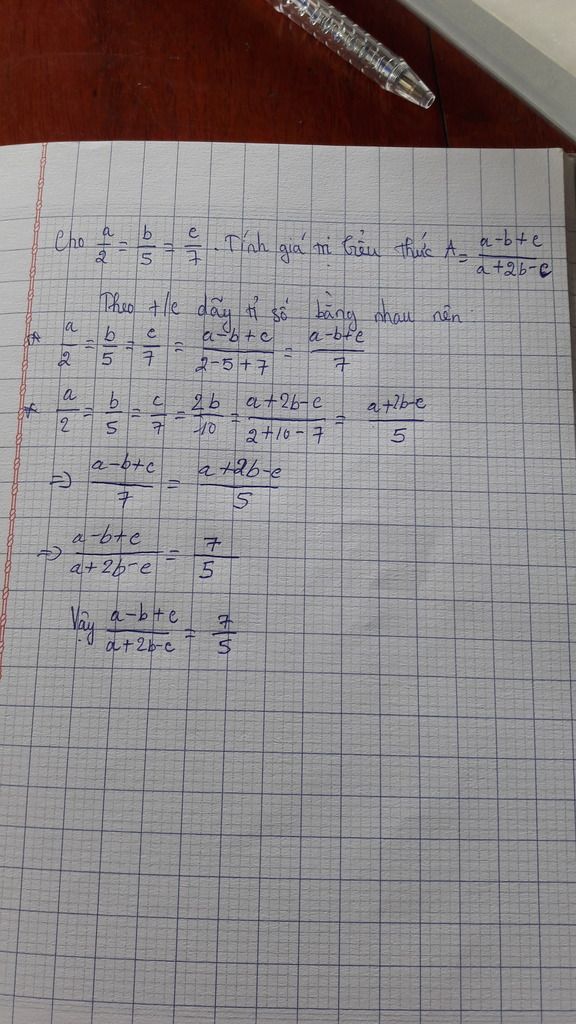 Cho a/2 = b/5 = c/7 . Tính giá trị biểu thức A = (a-b+c)/(a+2b-c)
Theo t/c dãy tỉ số bằng nhau nên:
* a/2 = b/5 = c/7 = (a-b+c)/(2-5+7) = (a-b+c)/7
* a/2 = b/5 = c/7 = 2b/10 = (a+2b-c)/(2+10-7) = (a+2b-c)/5
=> (a-b+c)/7 = (a+2b-c)/5
=> (a-b+c)/(a+2b-c) = 7/5
Vậy (a-b+c)/(a+2b-c) = 7/5